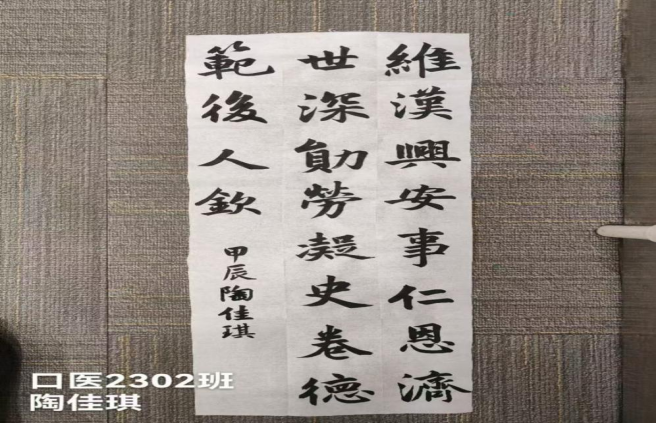 維漢興安事仁恩濟
世深勛勞凝史卷德
範後人欽
甲辰陶佳琪
口医2302班
陶佳琪